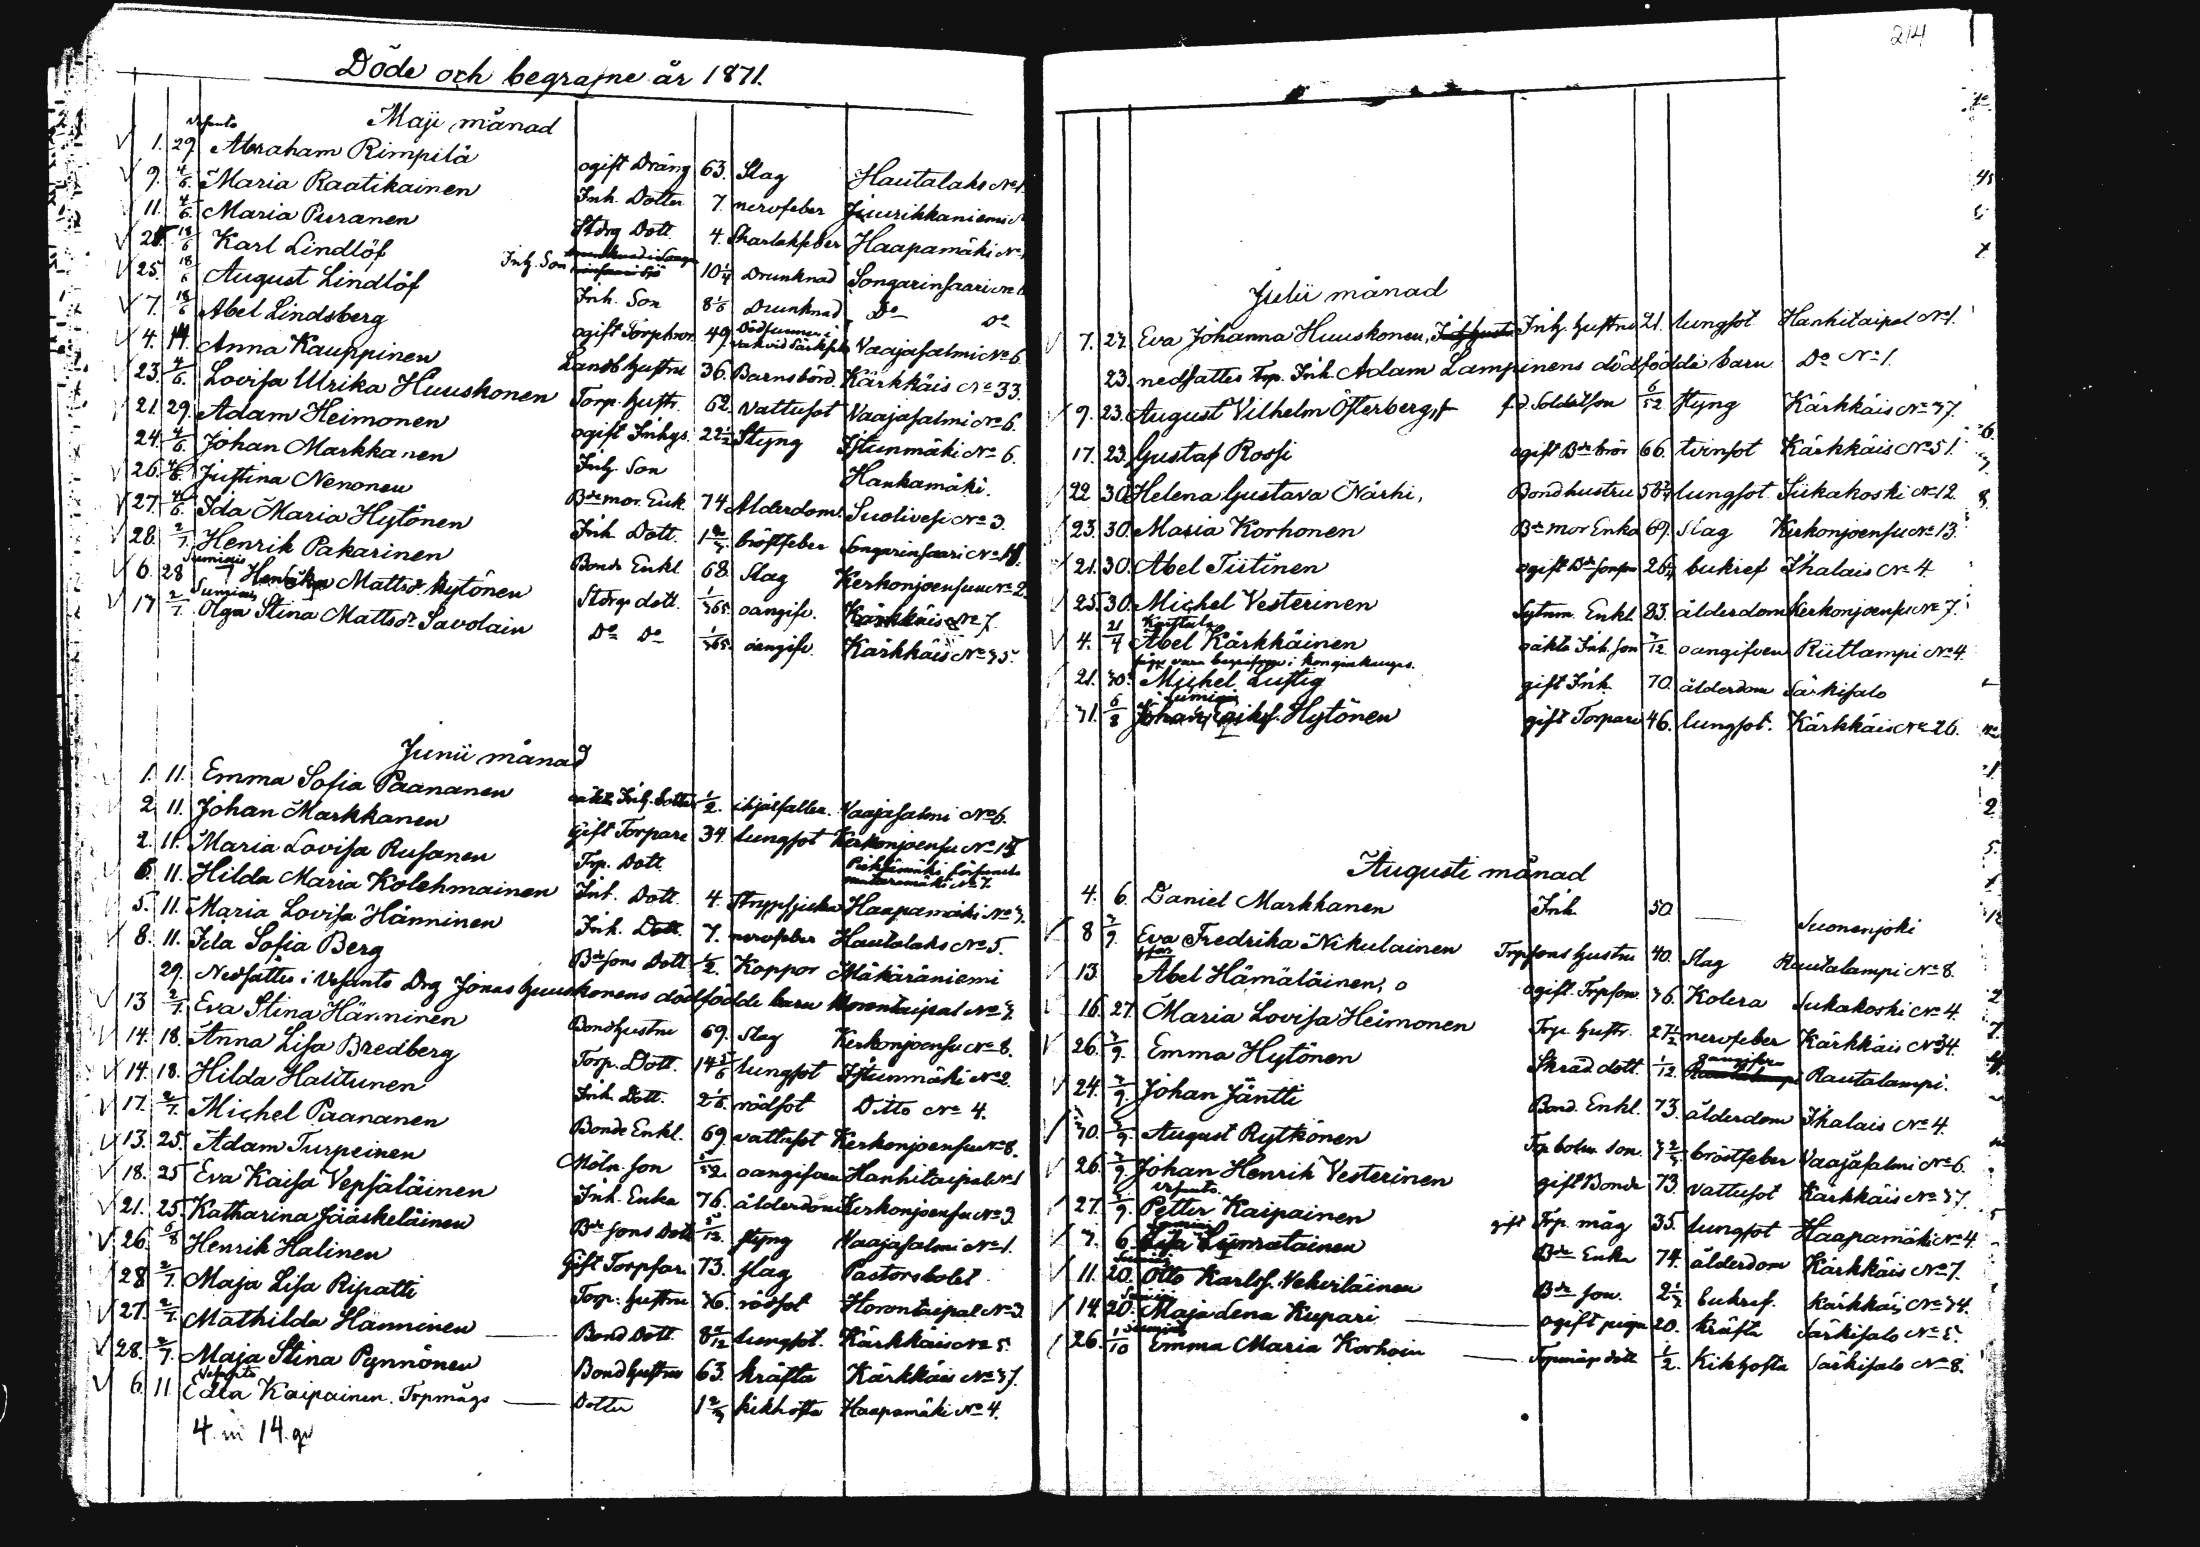 Döde och begrafne år 1871.
Maji månad
Vesanto
1. 29. Abraham Rimpilä ogift Dräng 63. Slag Hautalaks No
9. 4/6. Maria Raatikainen Inh. Dotter 7. nervfeber Jiuurikkaniemi
11. 4/6. Maria Puranen Stdrg Dott. 4. Skarlakfeber Haapamäki No
18/6 Karl Lindlöf Inhs. Son 10 1/4 Drunknad Songarinsaari No
25. 18/6 August Lindlöf Inh. Son 8 1/6 Drunknad Do Do
7. 18/6 Abel Lindsberg ogift Torpbror 49. Vaajasalmi No 6
4. 14. Anna Kauppinen Landb hustru 36. Barnsbörd. Kärkkäis No 33.
23. 4/6. Lovisa Ulrika Huuskonen Torp. hustr. 62. vattusot Vaajasalmi No 6.
21 29. Adam Heimonen ogift Inhys. 22 1/2 Styng Istunmäki No 6.
24. 4/6. Johan Markkanen Inhs. Son Hankamäki.
26. 4/6. Justina Nenonen Bde mor. Enk. 74. Ålderdom. Suolivesi No 3.
27. 4/6. Ida Maria Hytönen Inh. Dott. 1 2/3. bröstfeber Songarinsaari No
28. 2/7. Henrik Pakarinen Bonde Enkl. 68. Slag Kerkonjoensuu No 2.
Sumiais
6. 28 Mattsdr Hytönen Stdrgs dott. 1/365. oangifv. Kärkkäis No 7.
Sumiais
17 2/7. Olga Stina Mattsdr Savolain Do Do 1/365. oangifv. Kärkkäis No 35.
Junii månad
1. 11. Emma Sofia Paananen oäkta Inhs. Dotter 1/2. ihjälfallen. Vaajasalmi No 6.
2. 11. Johan Markkanen Gift Torpare 34. lungsot Kerkonjoensu No
2. 11. Maria Lovisa Rusanen Trp. Dott.
6. 11. Hilda Maria Kolehmainen Inh. Dott. 4. Strypsjuka Haapamäki No 3.
5. 11. Maria Lovisa Hänninen Inh. Dott. 7. nervfeber Hautalaks No 5.
8. 11. Ida Sofia Berg Bde sons Dott. 1/2. Koppor Mäkäräniemi
29. Nedsattes i Vesanto Drg Jonas Huuskonens dödfödde barn Horontaipal No 3.
13 2/7. Eva Stina Hänninen Bondhustru 69. Slag Kerkonjoensu No 8.
14. 18. Anna Lisa Bredberg Torp. Dott. 14 5/6 lungsot Istunmäki No 2.
14. 18. Hilda Halttunen Inh. Dott. 2 1/6. rödsot Ditto No 4.
17. 2/7. Michel Paananen Bonde Enkl. 69. vattusot Kerkonjoensuu No 8.
13. 25. Adam Turpeinen Möln. son oangifven Hanhitaipal No 1
18. 25 Eva Kaisa Vepsäläinen Inh. Enka 76. ålderdom Kerkonjoensu No 3.
21. 25. Katharina Jääskeläinen Bde sons Dott. 5/12. styng Vaajasalmi No 1.
26. 6/8 Henrik Halinen Gift Torpfar. 73. slag Pastorsbolet
28 2/7. Maja Lisa Ripatti Torp. hustru 36. rödsot Horontaipal No 3.
27. 2/7. Mathilda Hänninen Bond Dott. lungsot. Kärkkäis No 5.
28. 2/7. Maja Stina Pynnönen Bondhustru 63. kräfta Kärkkäis No 37.
Vesanto
6. 11 Edla Kaipainen. Torpmågs Dotter 1 2/3 kikhosta Haapamäki No 4.
4. m 14. qv
214
Julii månad
7. 23. Eva Johanna Huuskonen, Inhs. hustru 21. lungsot Hanhitaipal No 1.
23. nedsattes Trp. Inh. Adam Lampinens dödfödda barn Do No 1.
9. 23. August Vilhelm Österberg f.d. Soldatson 6/52 styng Kärkkäis No 37.
17. 23. Gustaf Rossi ogift Bde bror 66. tvinsot Kärkkäis No 51.
22 30. Helena Gustava Närhi, Bondhustru lungsot. Siikakoski No 12.
23. 30. Maria Korhonen Bde mor Enka 69. Slag Kerkonjoensu No 13.
21. 30. Abel Tiitinen ogift Bde sonson bukref Ihalais No 4.
25. 30. Michel Vesterinen Sytnm. Enkl. 83. ålderdom Kerkonjoensu No 7.
4. Abel Kärkkäinen oäkta Inh. son oangifven Riitlampi No 4.
säges vara begrafven i Konginkangas.
21. 30. Michel Lustig gift Inh. 70. ålderdom Särkisalo
Sumiais
31. 6/8 Johan Eriks. Hytönen gift Torpare 46. lungsot. Kärkkäis No 26.
Augusti månad
4. 6. Daniel Markkanen Inh. 50. Suonenjoki
8 3/9. Eva Fredrika Nikulainen Trpsons hustru 40. Slag Rautalampi No 8.
13. Abel Hämäläinen, o ogift. Trpson. 36. Kolera Sukakoski No 4.
16. 27. Maria Lovisa Heimonen Trp. hustr. 27 1/2 nervfeber Kärkkäis No 34.
26. 3/9. Emma Hytönen Skräd dott 1/12. oangifven Rautalampi.
24. 3/9. Johan Jäntti Bond. Enkl. 73. ålderdom Ihalais No 4.
30. 3/9. August Rytkönen Trp bolm son. 3 2/3. bröstfeber Vaajasalmi No 6.
26. 3/9 Johan Henrik Vesterinen gift Bonde 73. vattusot Kärkkäis No 37.
Vesanto
27. 3/9. Petter Kaipainen gift Trp. måg 35. lungsot Haapamäki No 4.
Sumiais
7. 6. Lisa Liimatainen Bde Enka 74. ålderdom Kärkkäis No 7.
Sumiais
11. 20. Otto Karlss. Vehviläinen Bde son. 2 1/3. bukref. Kärkkäis No 34.
Sumiais
14. 20. Maja Lena Kupari ogift piga 20. kräfta Särkisalo No 8.
Sumiais
26. 1/10 Emma Maria Korhoin Torpmågs dött 1/2. Kikhosta Särkisalo No 8.